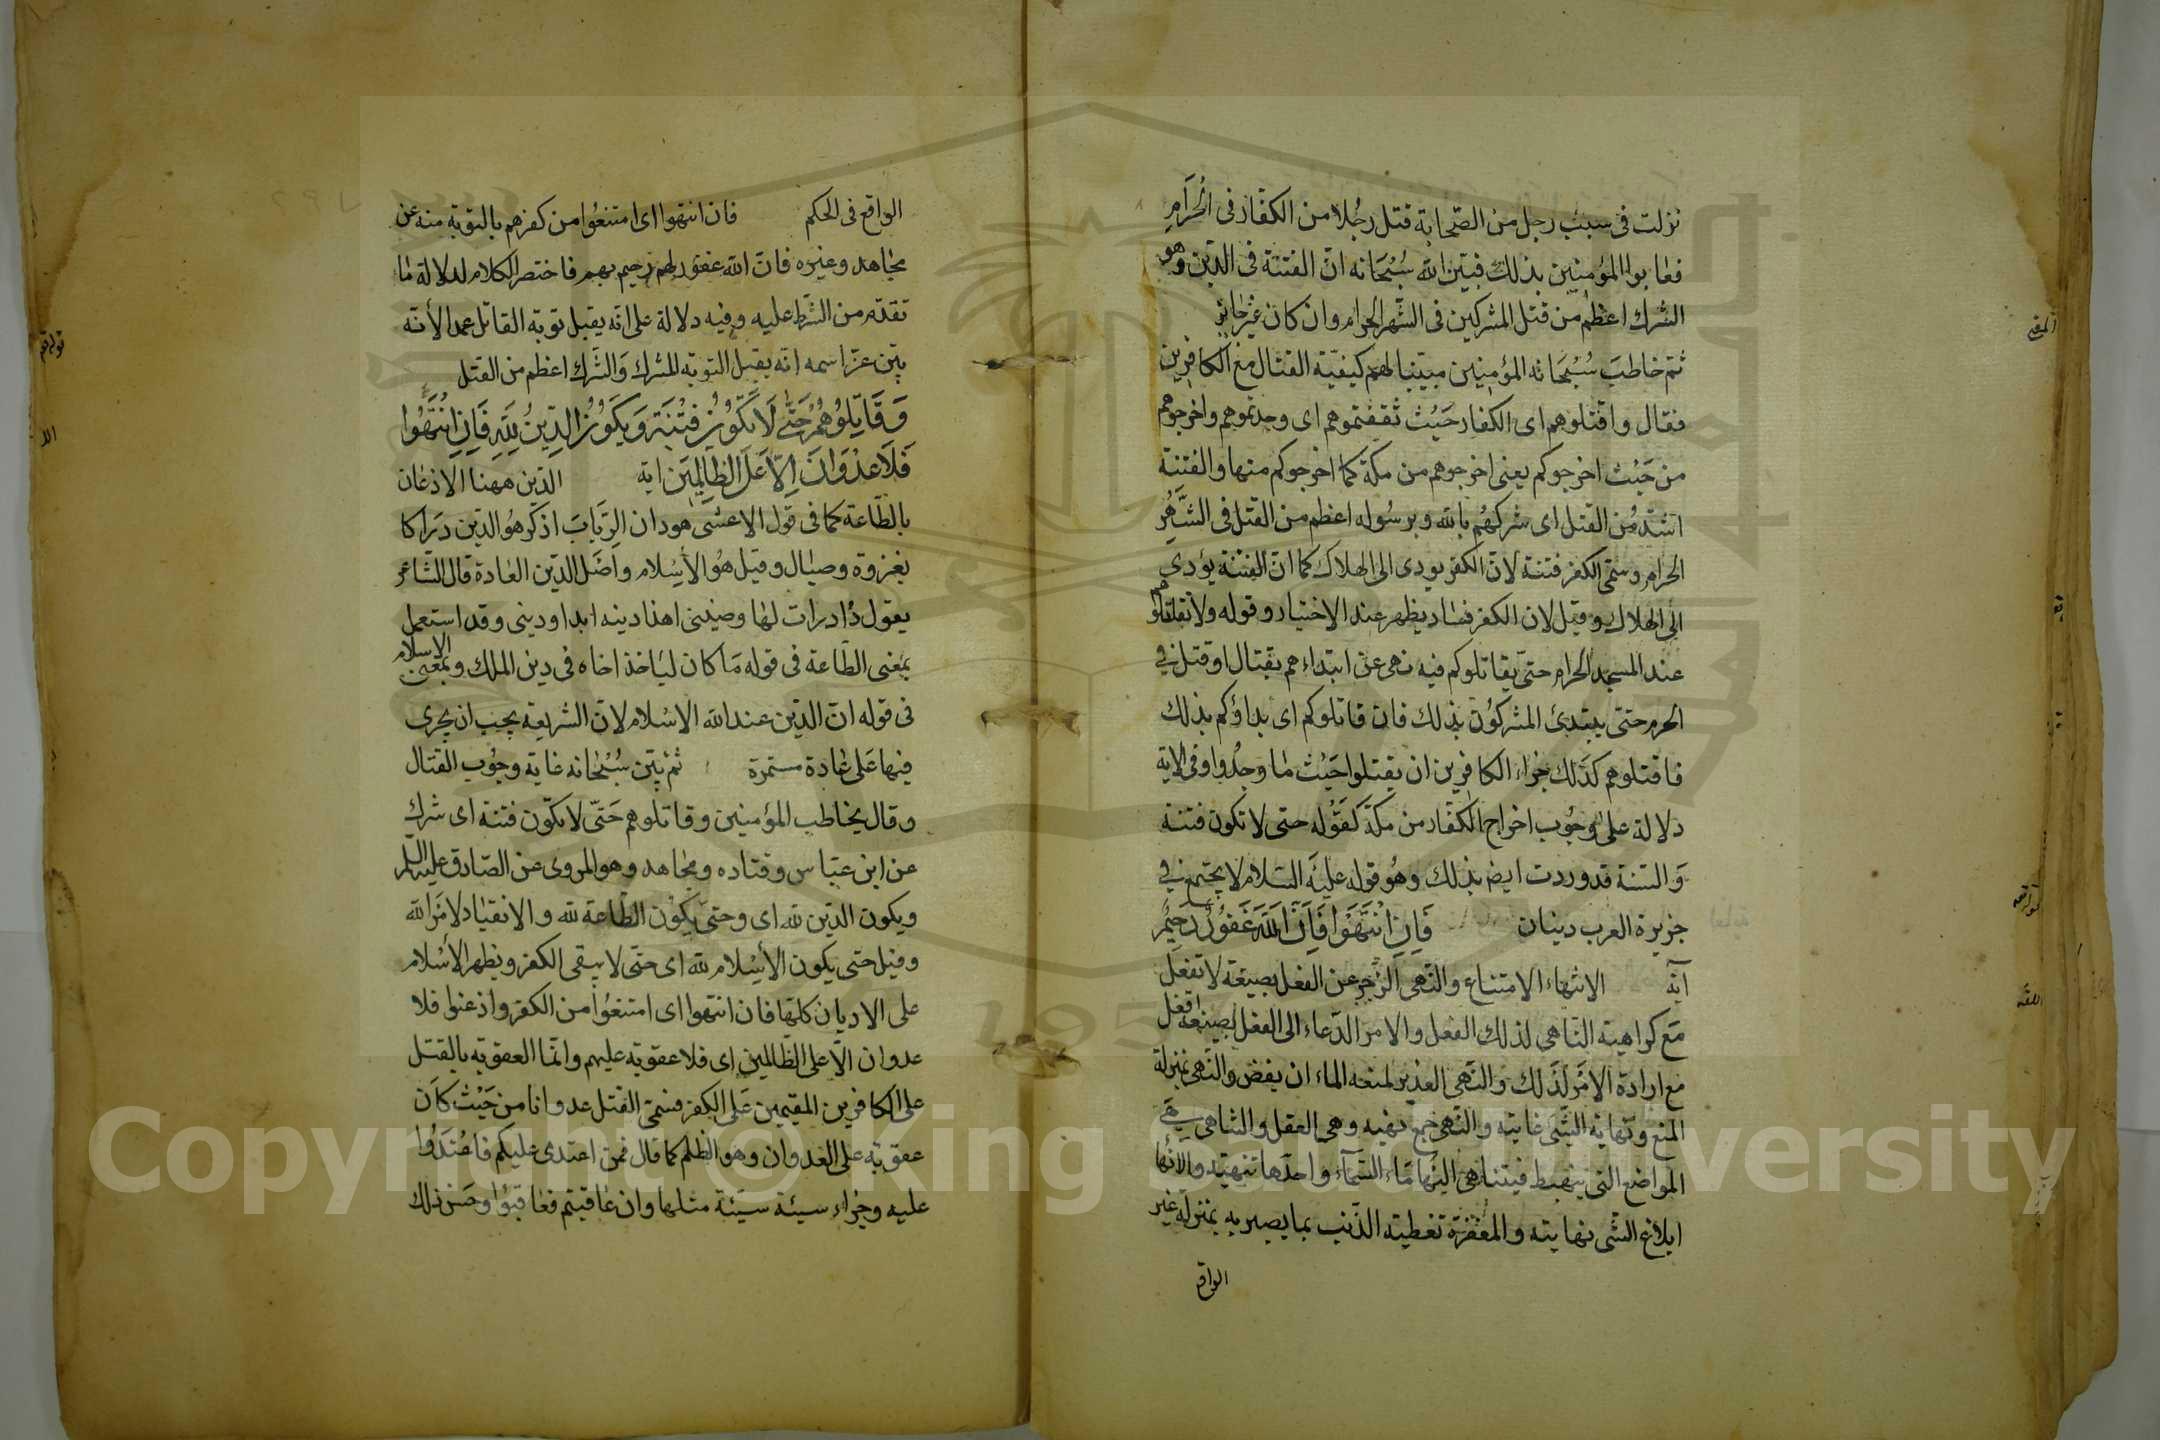 نزلت فى سبب رجل من الصحابة قتل رجلا من الكفار فى الحرام
فعابوا المؤمنين بذلك فبين الله سبحانه ان الفتنة فى الدين وهو
الشرك اعظم من قتل المشركين فى الشهر الحرام وان كان غير جائز
ثم خاطب سبحانه المؤمنين مبينا لهم كيفية القتال مع الكافرين
فقال واقتلوهم اى الكفار حيث ثقفتموهم اى وجدتموهم واخرجوهم
من حيث اخرجوكم يعنى اخرجوهم من مكة كما اخرجوكم منها والفتنة
اشد من القتل اى شركهم بالله وبرسوله اعظم من القتل فى الشهر
الحرام وسمى الكفر فتنة لان الكفر يودى الى الهلاك كما ان الفتنة يؤدى
الى الهلاك وقيل لان الكفر فساد يظهر عند الاختبار وقوله ولا تقاتلوهم
عند المسجد الحرام حتى يقاتلوكم فيه نهى عن ابتداءهم بقتال او قتل فى
الحرم حتى يبتدئ المشركون بذلك فان قاتلوكم اى بداؤكم بذلك
فاقتلوهم كذلك جزاء الكافرين ان يقتلوا حيث ما وجدوا وفى الاية
دلالة على وجوب اخراج الكفار من مكة كقوله حتى لا تكون فتنة
والسنة قد وردت ايض بذلك وهو قوله عليه السلام لا يجتمع فى
جزيرة العرب دينان فان انتهوا فان الله غفور رحيم
اية الانتهاء الامتناع والنهى الزجر عن الفعل بصيغة لا تفعل
مع كراهية الناهى لذلك الفعل والامر الدعاء الى الفعل بصيغة افعل
مع ارادة الامر لذلك والنهى الغدير لمنعه الماء ان يفض والنهى بمنزلة
المنع ونهاية الشى غايته والنهى جمع نهيه وهى العقل والتناهى هى
المواضع التى ينهبط فيتناهى اليها ماء السماء واحدها تنهية والانها
ابلاغ الشى نهايته والمغفرة تغطية الذنب بما يصير به بمنزلة غير
الواقع
الواقع فى الحكم فان انتهوا اى امتنعوا من كفرهم بالتوبة منه عن
مجاهد وغيره فان الله غفور لهم رحيم بهم فاختصر الكلام لدلالة ما
تقدم من الشرط عليه وفيه دلالة على انه يقبل توبة القاتل عمدا لأنه
بين عز اسمه انه يقبل التوبة المشرك والشرك اعظم من القتل
وقاتلوهم حتى لا تكون فتنة ويكون الدين لله فان انتهوا
فلا عدوان الا على الظالمين اية الدين ههنا الاذعان
بالطاعة كما فى قول الاعشى هو دان الرباب اذ كرهوا الدين دراكا
بغزوة وصيال وقيل هو الأسلام واصل الدين العادة قال الشاعر
يقول اذا درات لها وضينى اهذا دينه ابدا ودينى وقد استعمل
بمعنى الطاعة فى قوله ما كان لياخذ اخاه فى دين الملك وبمعنى الاسلام
فى قوله ان الدين عند الله الاسلام لان الشريعة يجب ان يجرى
فيها على عادة مستمرة ثم بين سبحانه غاية وجوب القتال
وقال يخاطب المؤمنين وقاتلوهم حتى لا تكون فتنة اى شرك
عن ابن عباس وقتاده ومجاهد وهو المروى عن الصادق عليه السلم
ويكون الدين لله اى وحتى يكون الطاعة لله والانقياد لامر الله
وقيل حتى يكون الأسلام لله اى حتى لا يبقى الكفر ويظهر الأسلام
على الاديان كلها فان انتهوا اى امتنعوا من الكفر واذعنوا فلا
عدوان الا على الظالمين اى فلا عقوبة عليهم وانما العقوبة بالقتل
على الكافرين المقيمين على الكفر فسمى القتل عدوانا من حيث كان
عقوبة على العدوان وهو الظلم كما قال فمن اعتدى عليكم فاعتدوا
عليه وجزاء سيئة سيئة مثلها وان عاقبتم فعاقبوا وحسن ذلك
Copyright © King Saud University